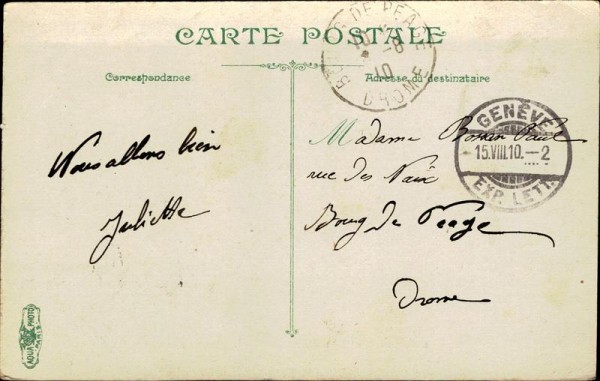 CARTE POSTALE
Correspondance
Adresse du destinataire
BOURG DE PEAGE
16 -8
10
DROME
GENÈVE
15.VIII.10.–2
EXP. LETT.
Nous allons bien
Juliette
Madame Bossan Paul
rue des Naix
Bourg de Péage
Drome
AQUA PHOTO
PARIS